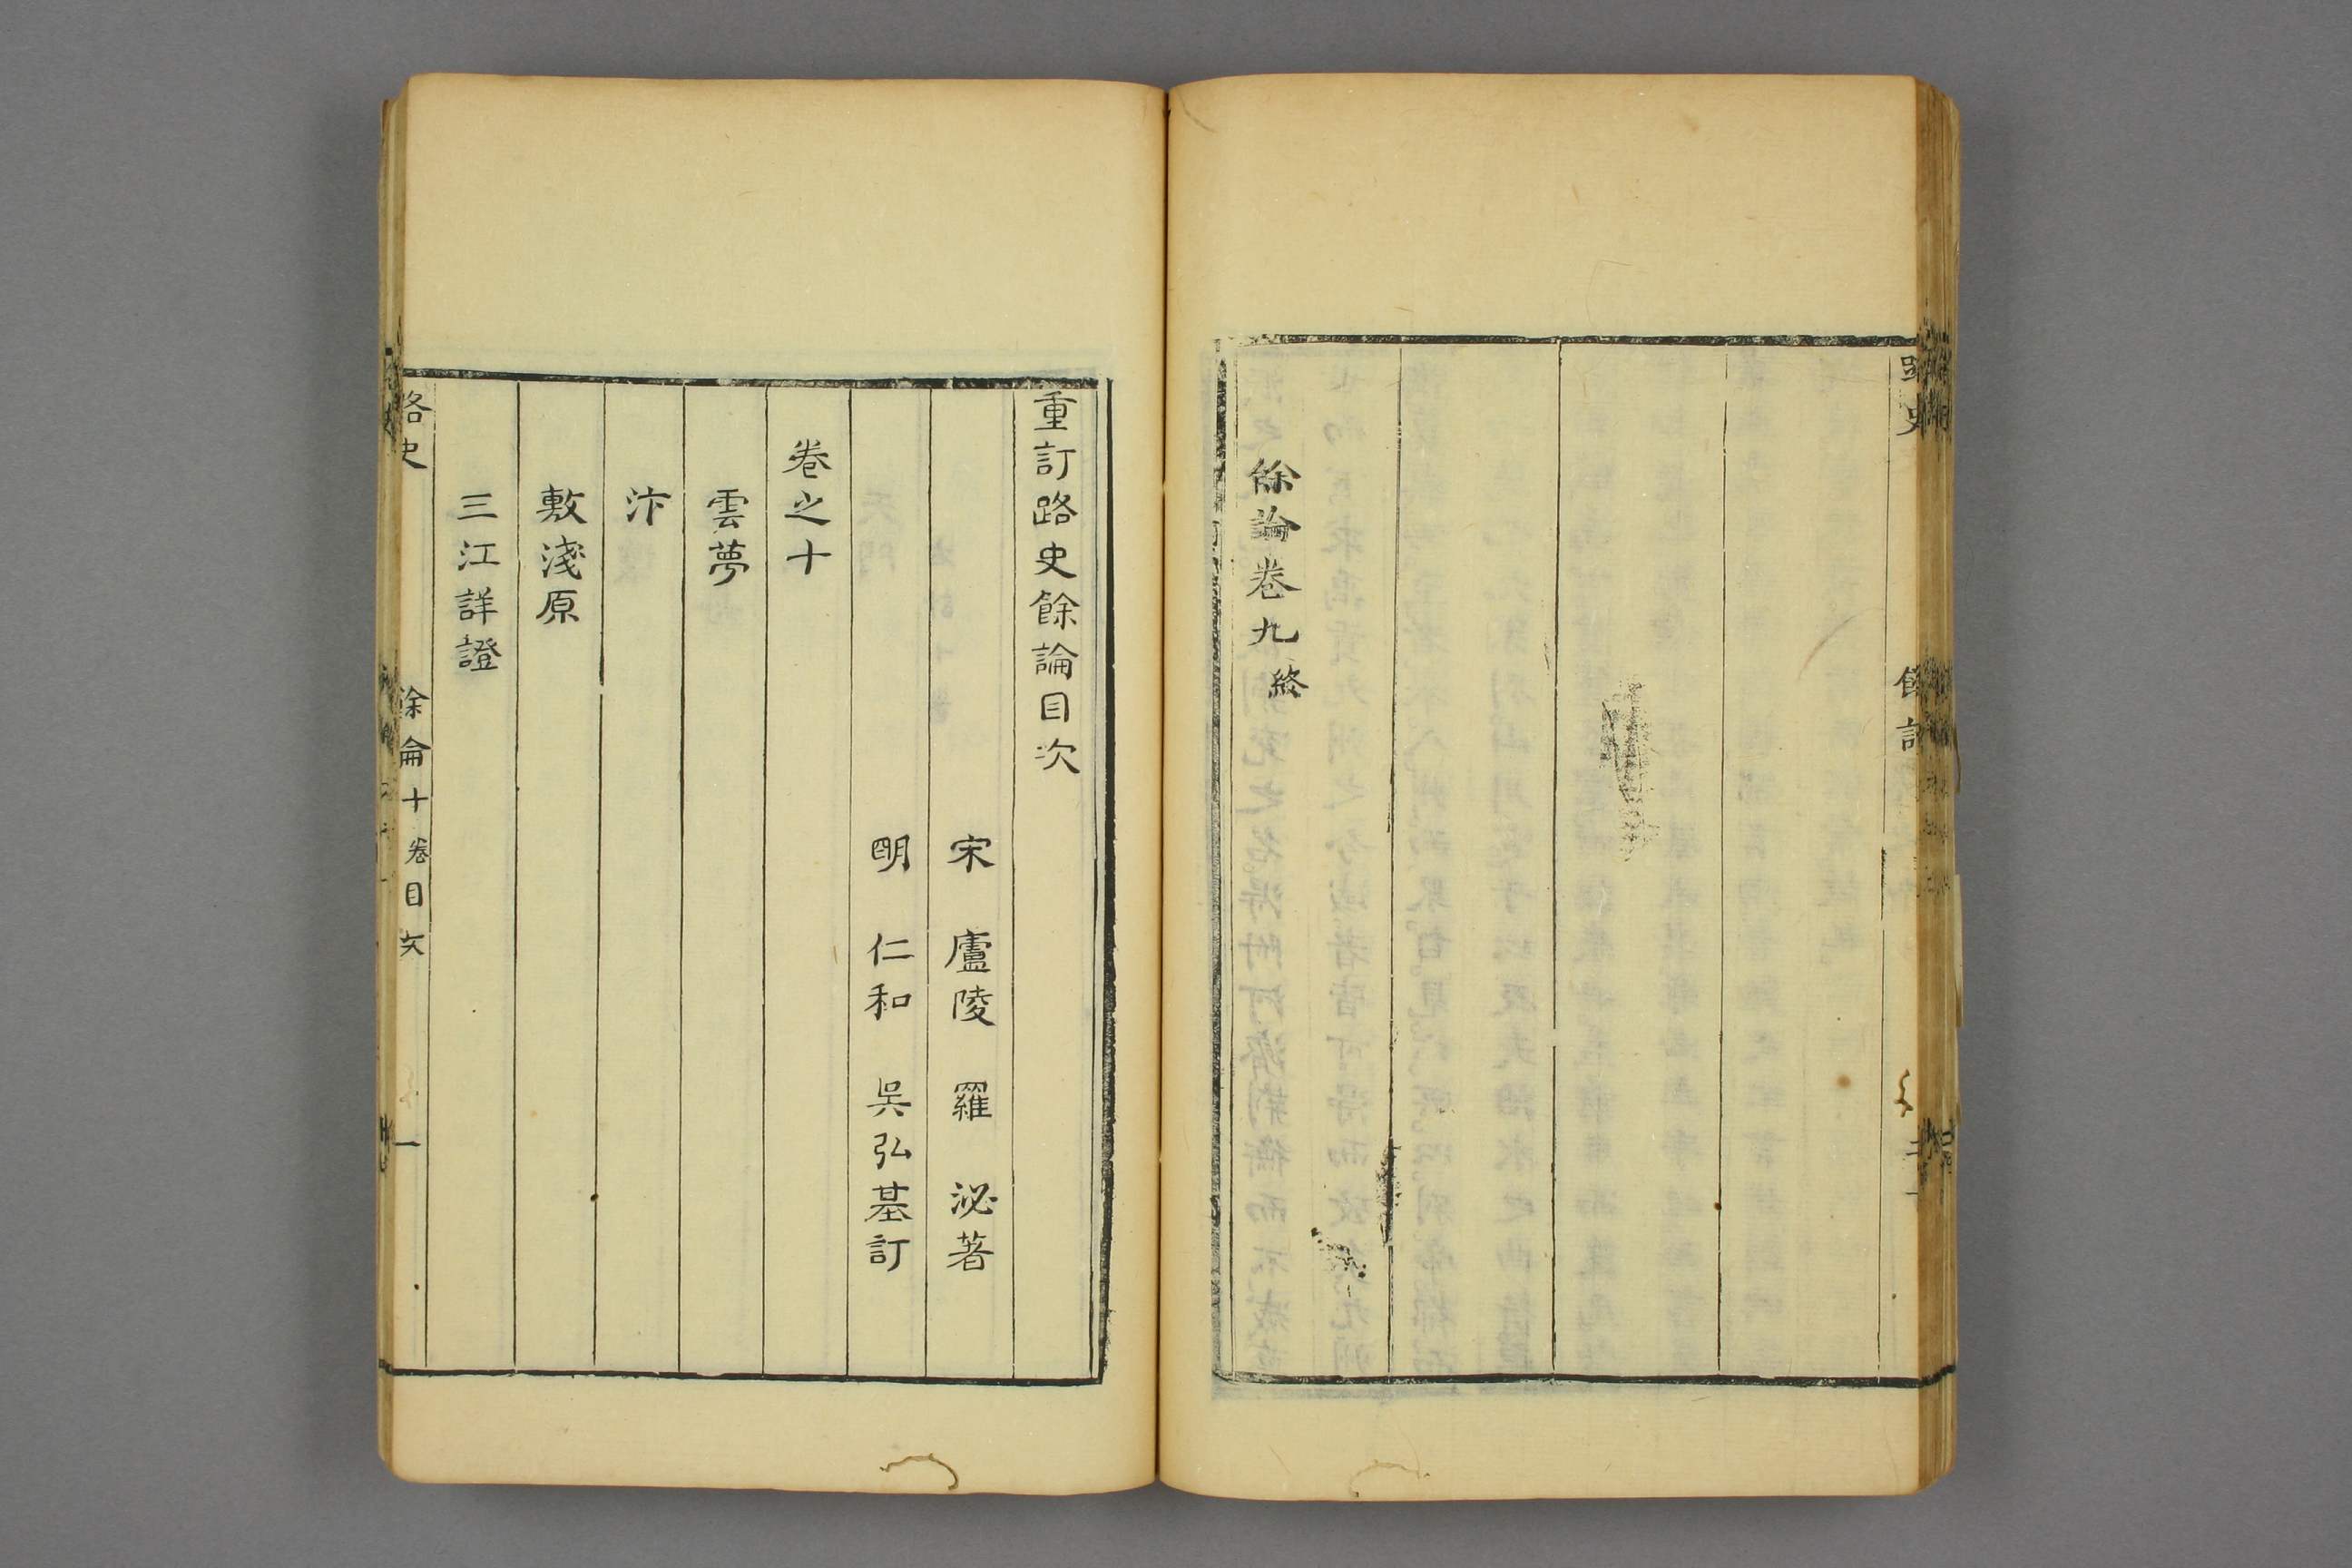 路史
餘論
餘論卷九終
重訂路史餘論目次
宋 廬陵 羅 泌著
明 仁和 吳弘基訂
卷之十
雲夢
汴
敷淺原
三江詳證
路史 餘論十卷目次 一